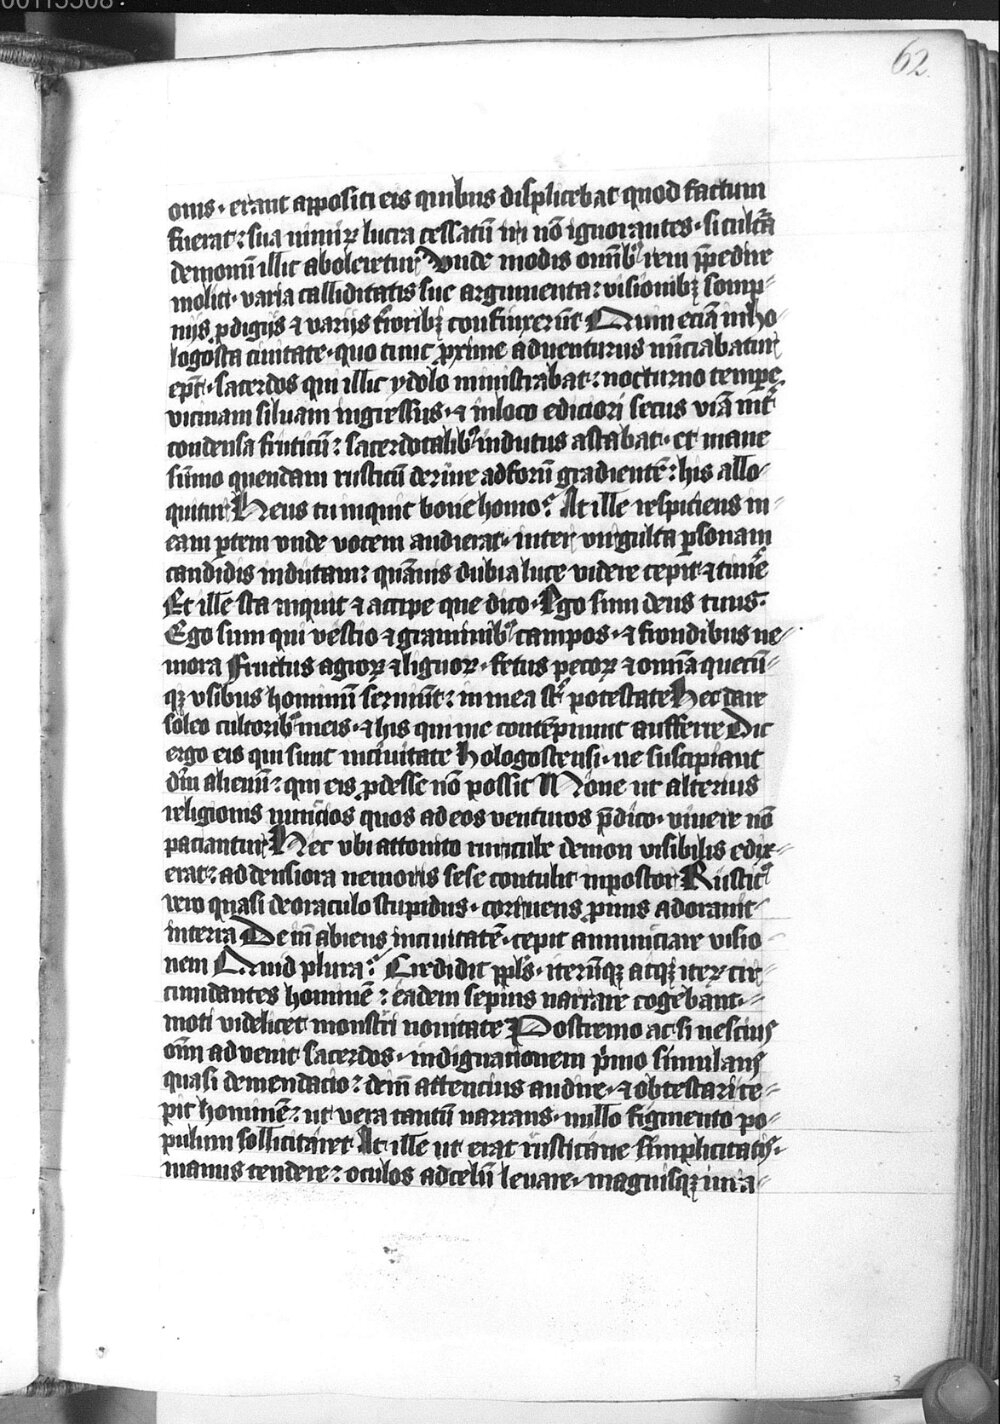 00115508
62
onis · erant appositi eis quibus displicebat quod factum
fuerat : sua nimirꝝ lucra cessatū iri nō ignorantes · si cultꝰa
demonum illic aboleretur Unde modis omībꝰ rem īpedire
moliti · varia calliditatis sue argumenta : visionibꝫ somp⸗
nijs ꝓdigijs ⁊ varijs terroribꝫ confinxerūt Quin eciā in ho⸗
logosta ciuitate · quo tunc ꝓxime aduenturus nūciabatur
ep̄c · sacerdos qui illic ydolo ministrabat : nocturno tempe
vicinam siluam ingressus · ⁊ in loco ediciori secus viā int̄
condensa fruticū : sacerdotalibꝰ indutus astabat · et mane
sūmo quendam rusticū de rure ad forū gradientē : his allo⸗
quitur Heus tu inquit bone homo · At ille respiciens in⸗
eam ꝑtem vnde vocem audierat · inter virgulta ꝑsonam
candidis indutam : quāuis dubia luce videre cepit ⁊ timē
Et ille sta inquit ⁊ accipe que dico · Ego sum deus tuus ·
Ego sum qui vestio ⁊ graminibꝰ campos · ⁊ frondibus ne⸗
mora Fructus agroꝝ ⁊ lignoꝝ · fetus pecoꝝ ⁊ omīa quecū⸗
qꝫ vsibus hominum seruiūt : in mea st̄ potestate Hec dare
soleo cultoribꝰ meis · ⁊ his qui me contēpnunt aufferre Dic
ergo eis qui sunt in ciuitate Hologostensi · ne suscipiant
dm̄ alienū : qui eis ꝓdesse nō possit Mone ut alterius
religionis nuncios quos ad eos venturos p̄dico · viuere nō
paciantur Hec vbi attonito ruricule demon visibilis edix⸗
erat : ad densiora nemoris sese contulit inpostor Rusticꝰ
vero quasi de oraculo stupidus · corruens ꝓnus adorauit⸗
in terra Dein abiens in ciuitatē · cepit annunciare visio⸗
nem Quid plura · Credidit ppl̄s · iterūqꝫ atqꝫ iteꝝ cir⸗
cumdantes hominē : eadem sepius narrare cogebant ·⸗
moti videlicet monstri nouitate Postremo ac si nescius
oīm aduenit sacerdos · indignationem p̄mo simulans
quasi de mendacio : dein attencius audire · ⁊ obtestari ce⸗
pit hominē : ut vera tantū narrans · nullo figmento po⸗
pulum sollicitaret At ille ut erat rusticane simplicitatis ·
manus tendere : oculos ad celū leuare · magnisqꝫ iura⸗
3